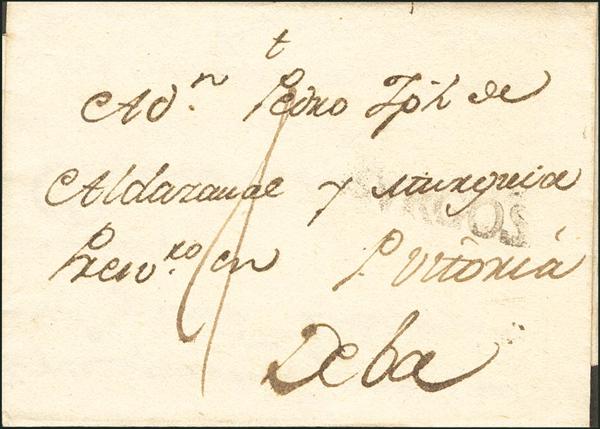 t
A Dn Pedro Jph de
Aldazaual y Murguia
Presvro en P. Vitoria
Deba
BURGOS